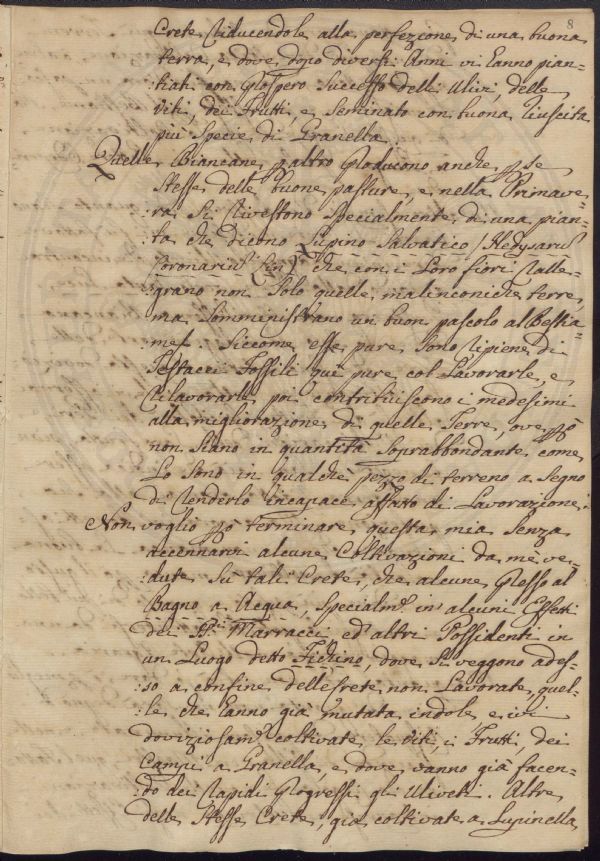 8
Crete riducendole alla perfezione di una buona
terra, e dove dopo diversi Anni vi hanno pian=
=tati con prospero successo delli Ulivi, delle
Viti, dei Frutti, e seminato con buona riuscita
più Specie di Granella.
Quelle Biancane p altro producono anche p se
stesse delle buone pasture, e nella Primave=
=ra si rivestono specialmente di una pian=
=ta che dicono Lupino Salvatico /Hedysarū
Coronariū Lin/ che con i loro fiori ralle=
=grano non solo quelle malinconiche terre,
ma somministrano un buon pascolo al Bestia=
=me. Siccome esse pure sono ripiene di
Testacei Fossili quì pure col lavorarle, e
rilavorarle poi contribuiscono i medesimi
alla migliorazione di quelle Terre, ove pò
non siano in quantità soprabbondante come
lo sono in qualche pezzo di terreno a segno
di renderlo incapace affatto di lavorazione.
Non voglio pò terminare questa mia senza
accennarvi alcune Coltivazioni da mè ve=
=dute su tali Crete, che alcune presso al
Bagno a Acqua, specialmē in alcuni Effetti
dei SS.ri Marracci ed altri Possidenti in
un Luogo detto Fichino, dove si veggono ades=
=so a confine delle Crete non lavorate, quel=
=le che hanno già mutata indole, e ivi
doviziosamē coltivate le Viti, i Frutti, dei
Campi a Granella, e dove vanno già facen=
=do dei rapidi progressi gli Uliveti. Altre
delle stesse Crete, già coltivate a Lupinella